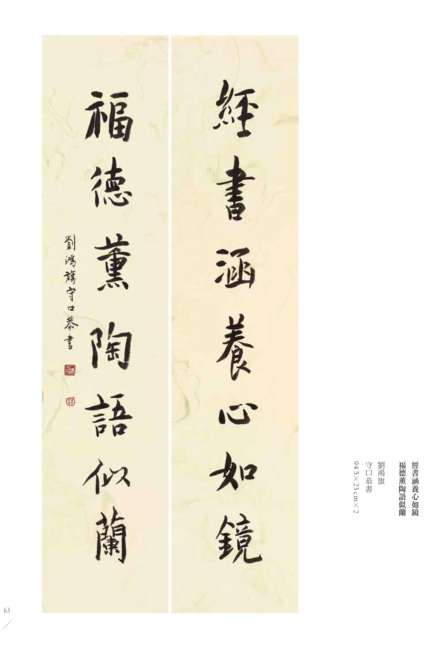 經書涵養心如鏡
福德薰陶語似蘭
劉鴻旗守口恭書
經書涵養心如鏡
福德薰陶語似蘭
劉鴻旗
守口恭書
94.5×23cm×2
63